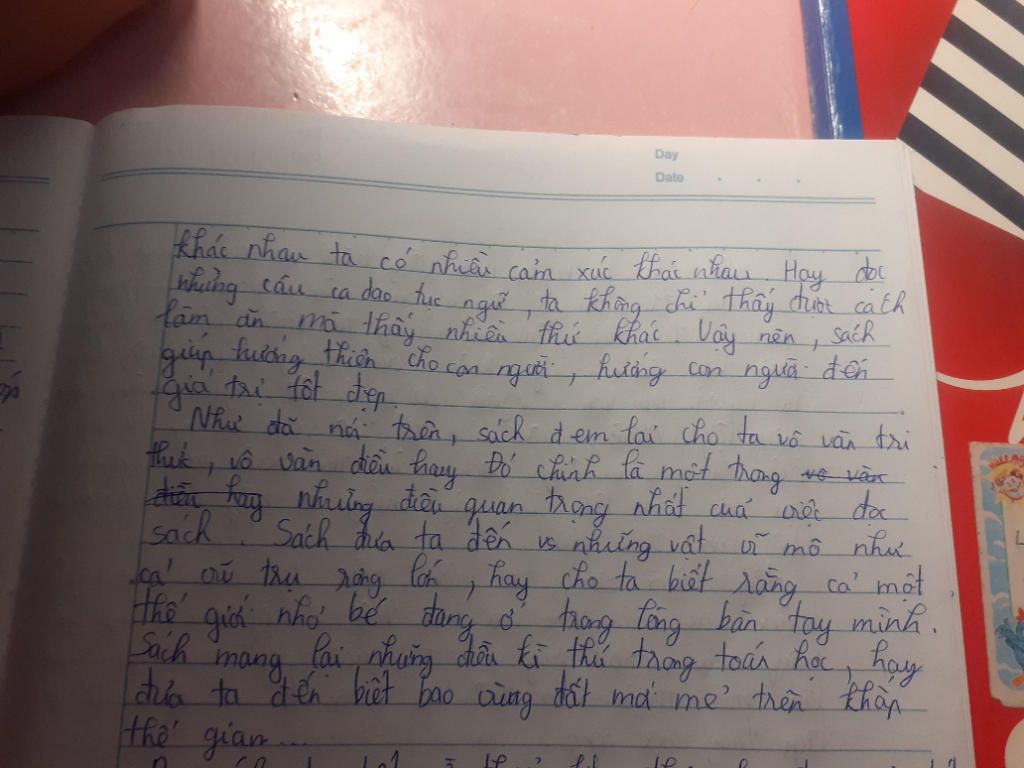 Day
Date
khác nhau ta có nhiều cảm xúc khác nhau. Hay đọc
những câu ca dao tục ngữ, ta không chỉ thấy được cách
làm ăn mà thấy nhiều thứ khác. Vậy nên, sách
giúp hướng thiện cho con người, hướng con người đến
giá trị tốt đẹp.
Như đã nói trên, sách đem lại cho ta vô vàn tri
thức, vô vàn điều hay. Đó chính là một trong vô vàn
điều hay những điều quan trọng nhất của việc đọc
sách. Sách đưa ta đến vs những vật vĩ mô như
cả vũ trụ rộng lớn, hay cho ta biết rằng cả một
thế giới nhỏ bé đang ở trong lòng bàn tay mình.
Sách mang lại những điều kì thú trong toán học, hay
đưa ta đến biết bao vùng đất mới mẻ trên khắp
thế gian...